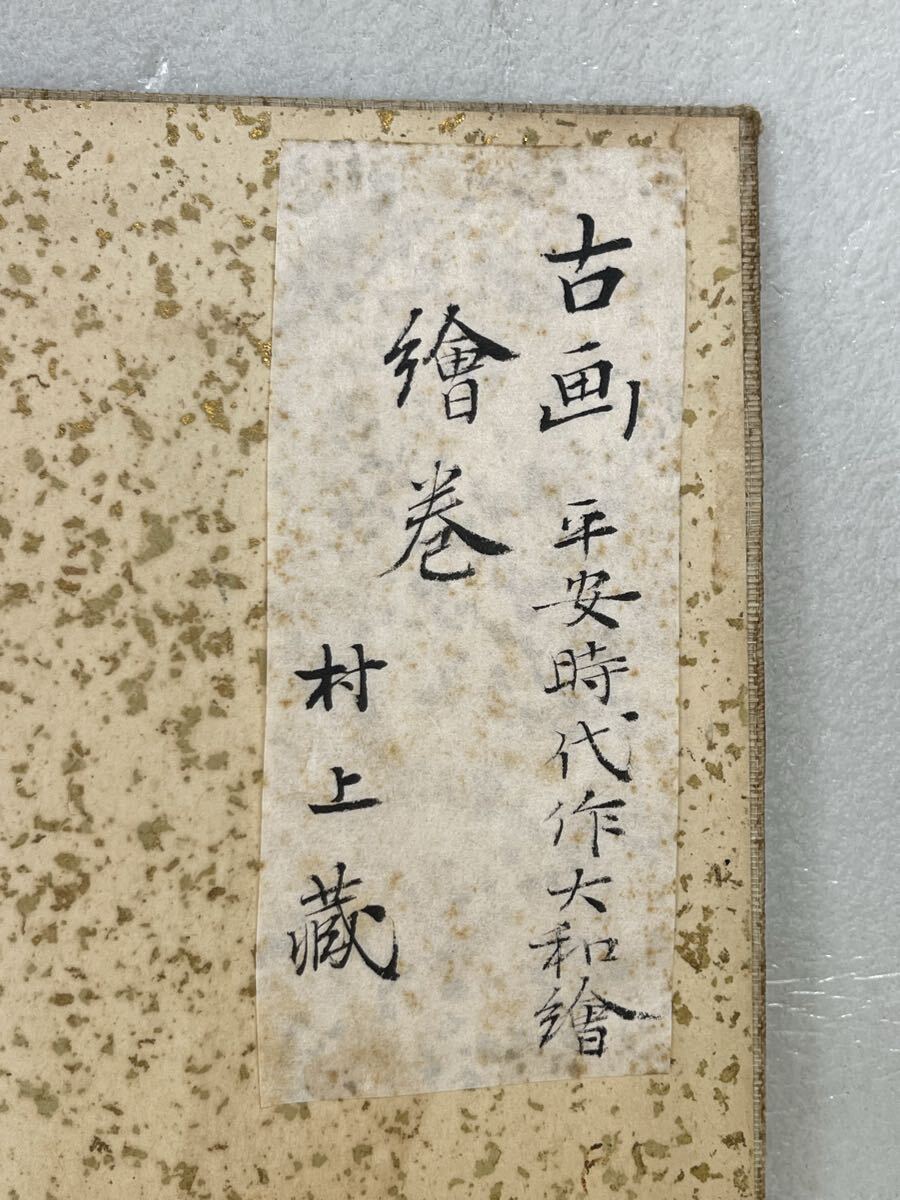 古画 平安時代作大和繪
繪巻
村上藏